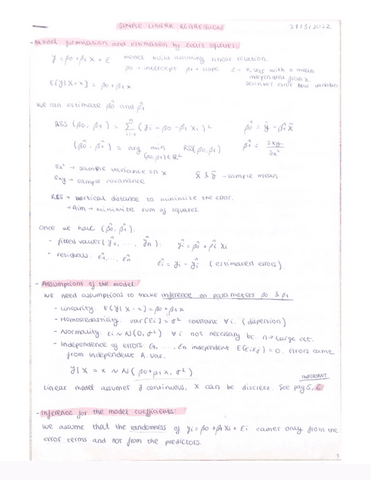 SIMPLE LINEAR REGRESSION 28/3/2022
- Model formulation and estimation by least squares:
y = β0 + β1x + ε
β0 = intercept β1 = slope
E(Y|X=x) = β0 + β1x
We can estimate β̂0 and β̂1
RSS (β0, β1) = Σ (yi - β0 - β1xi)²
β̂0 = ȳ - β̂1x̄
(β̂0, β̂1) = arg min RSS(β0, β1)
β̂1 =
sx² → sample variance on x
x̄ & ȳ → sample mean
sxy → sample covariance
RSS → vertical distance to minimize the error.
→ Aim → minimize sum of squares.
Once we have (β̂0, β̂1):
- fitted values (ŷ1, ..., ŷn): ŷi = β̂0 + β̂1xi
- residuals: ε̂1, ..., ε̂n
ε̂i = yi - ŷi (estimated errors).
- Assumptions of the model.
We need assumptions to make inference on parameters β0 & β1
- Linearity: E(Y|X=x) = β0 + β1x
- Homoscedasticity: var(εi) = σ² constant ∀i. (dispersion)
- Normality: εi ~ N(0, σ²) ∀i not necessary bc n → large
- Independence of errors: ε1, ..., εn independent E(εiεj) = 0. errors come
from independent R. var.
Y|X = x ~ N(β0 + β1x, σ²)
IMPORTANT
Linear model assumes Y continuous, X can be discrete. See pag 5,6
- Inference for the model coefficients:
We assume that the randomness of yi = β0 + β1xi + εi comes only from the
error terms and not from the predictors.
1